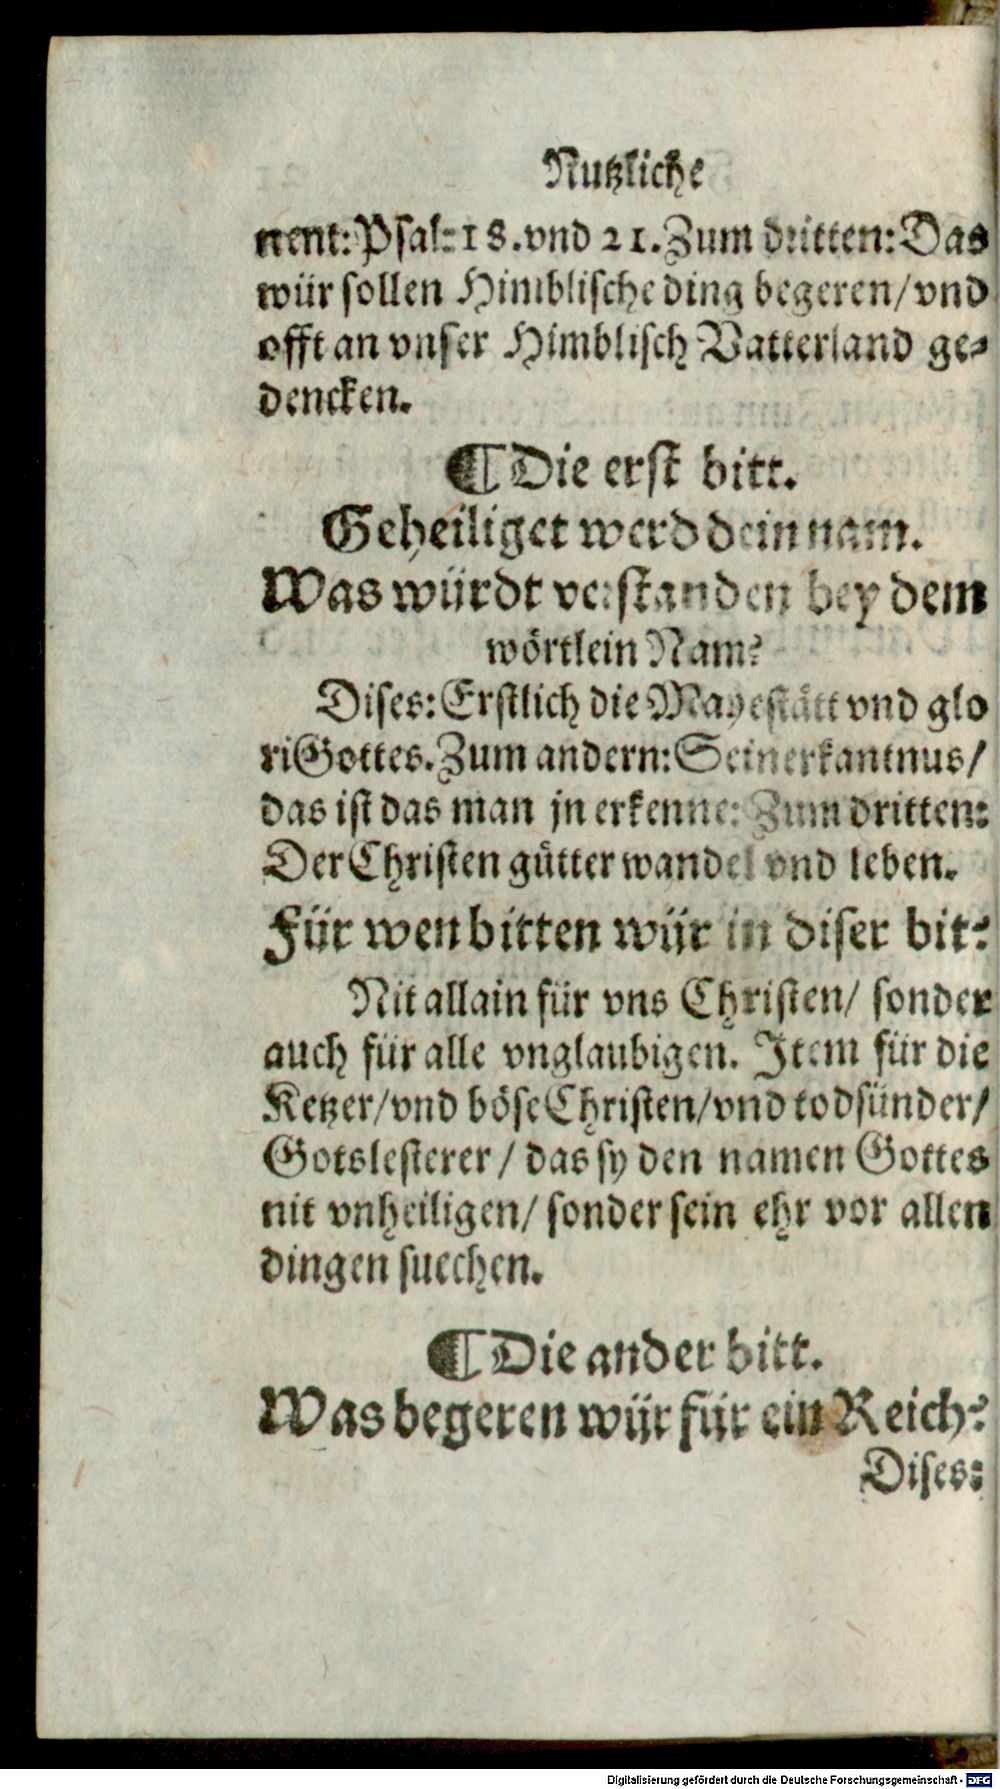 Nutzliche
nent: Psal: 18. vnd 21. Zum dritten: Das
wür sollen Himblische ding begeren/ vnd
offt an vnser Himblisch Vatterland ge⸗
dencken.
¶ Die erst bitt.
Geheiliget werd dein nam.
Was würdt verstanden bey dem
wörtlein Nam?
Dises: Erstlich die Mayestätt vnd glo
ri Gottes. Zum andern: Sein erkantnus/
das ist das man jn erkenne: Zum dritten:
Der Christen gütter wandel vnd leben.
Für wen bitten wür in diser bit?
Nit allain für vns Christen/ sonder
auch für alle vnglaubigen. Item für die
Ketzer/ vnd böse Christen/ vnd todsünder/
Gotslesterer/ das sy den namen Gottes
nit vnheiligen/ sonder sein ehr vor allen
dingen suechen.
¶ Die ander bitt.
Was begeren wür für ein Reich?
Dises:
Digitalisierung gefördert durch die Deutsche Forschungsgemeinschaft - DFG